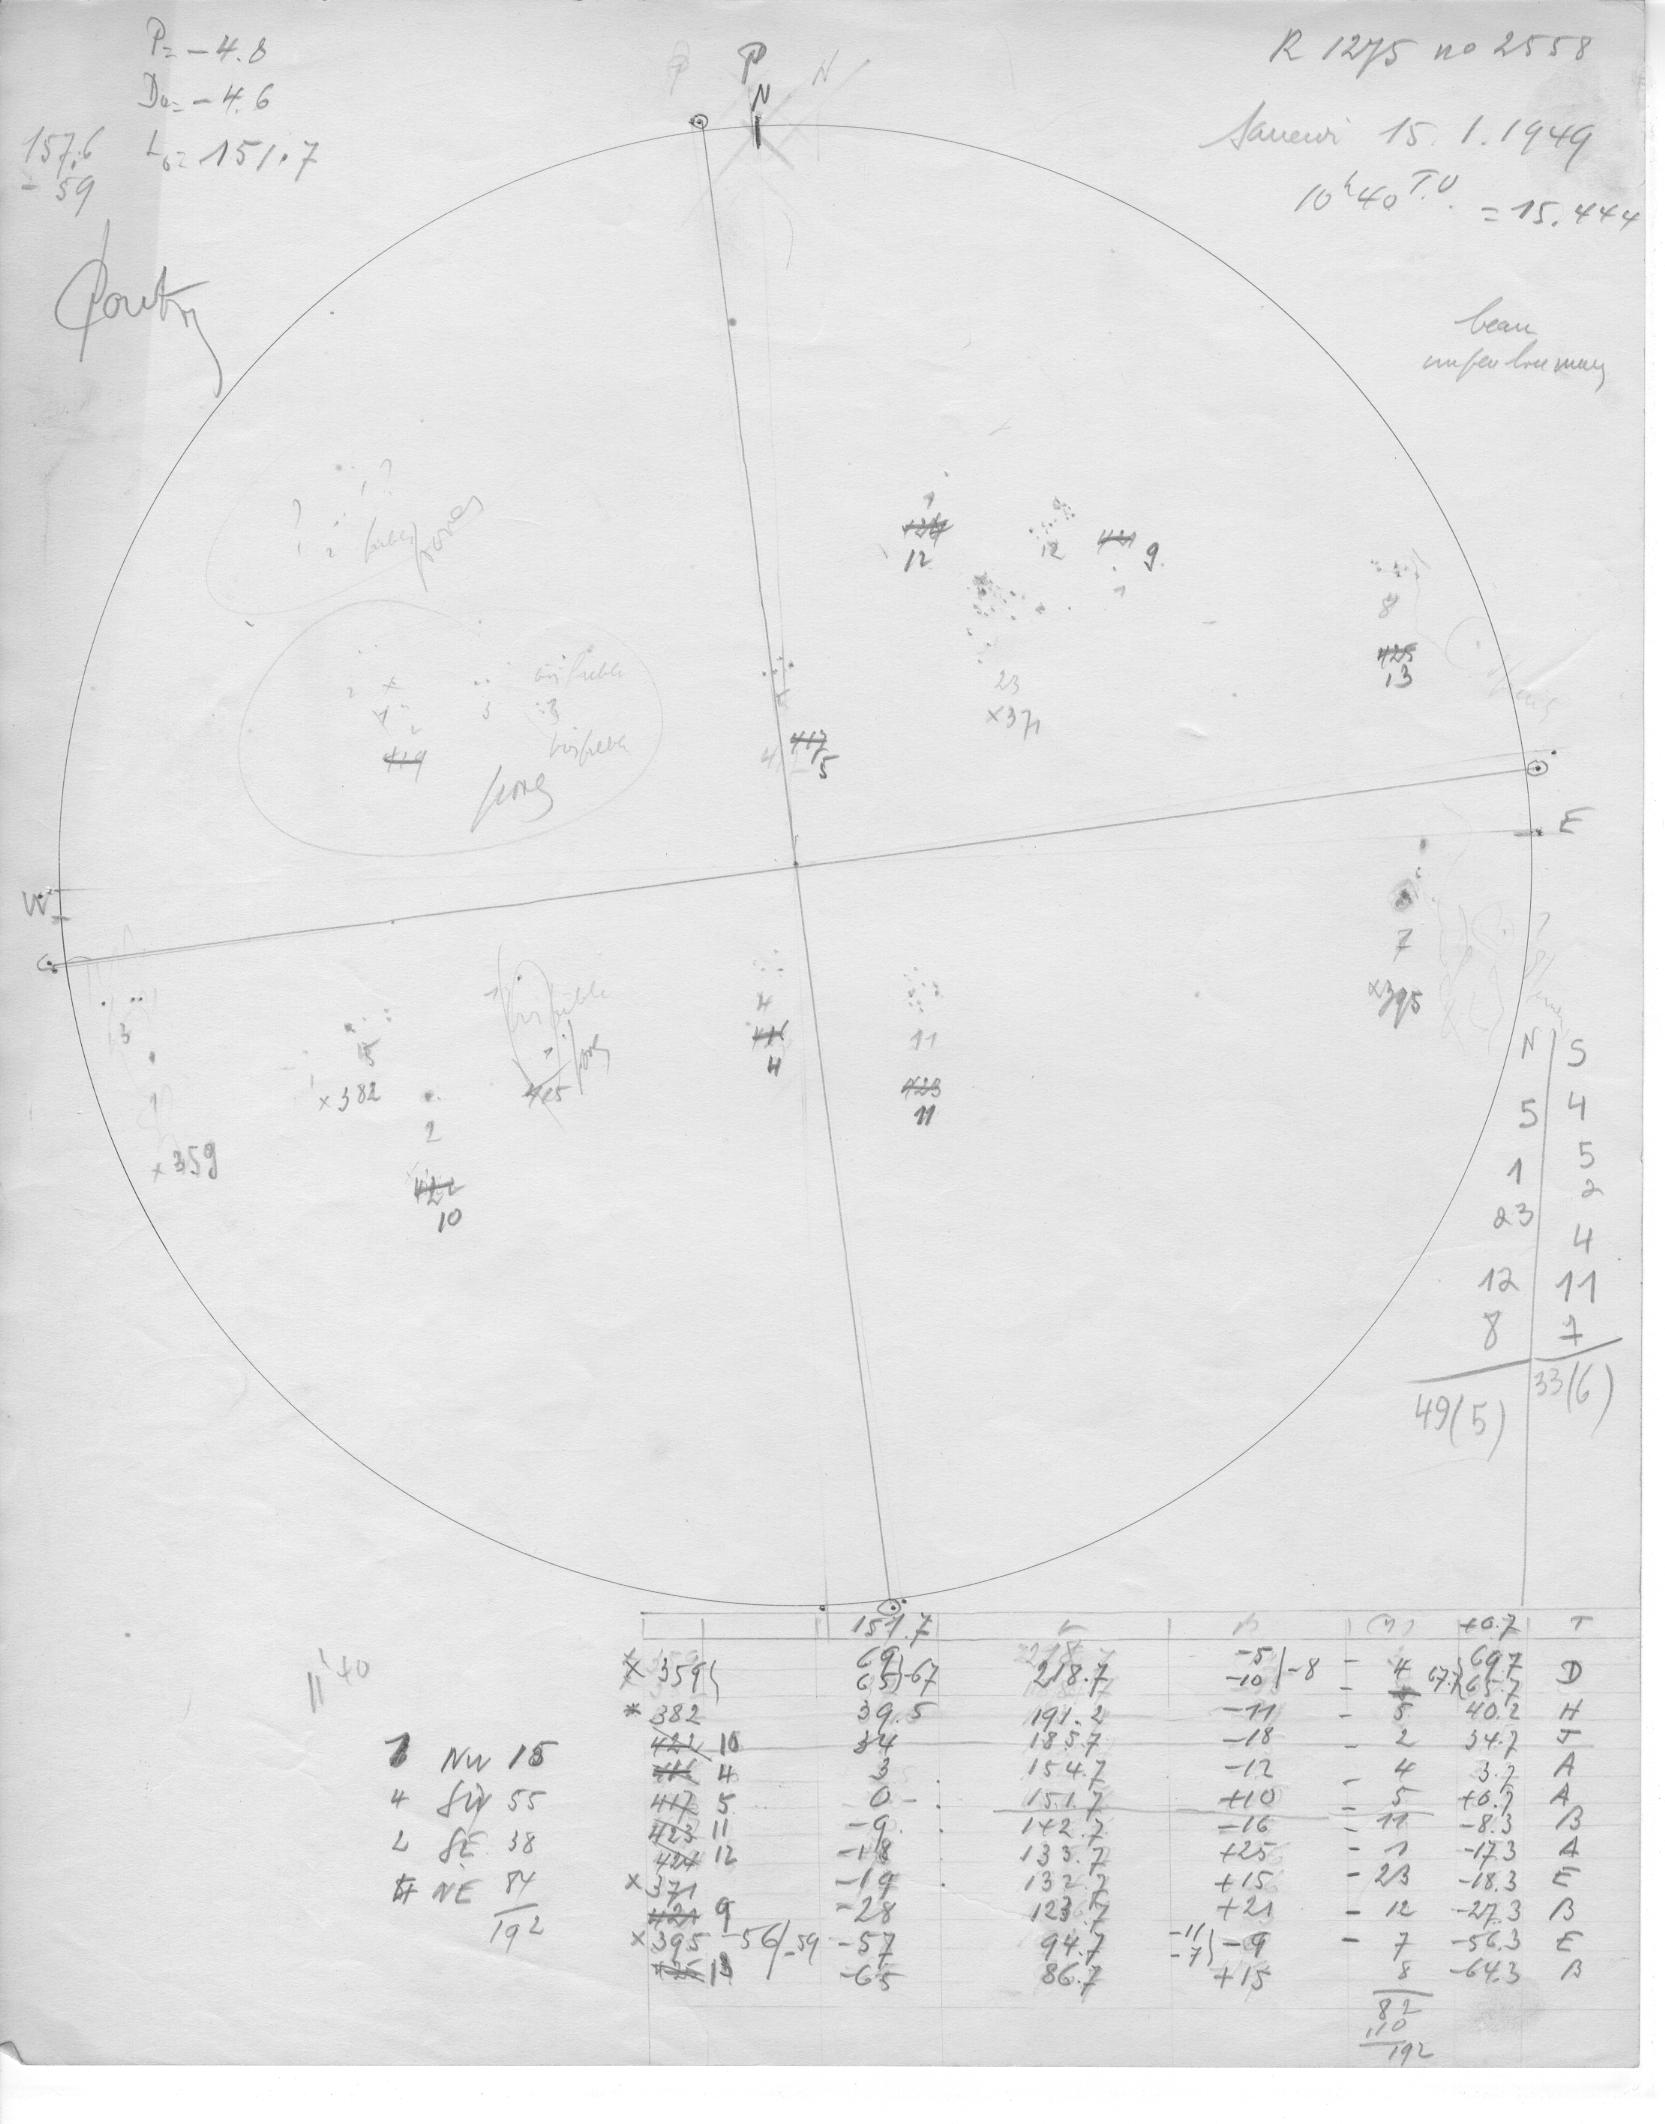 P= -4.8
D☉= -4.6
L₀= 151.7
157.6
- 59
P N
P
N
R 1275 no 2558
Samedi 15.1.1949
10ʰ40 T.U. = 15.444
beau
un peu brumeux
? ?
1
1 2 faibles pores
1
424
12
12
421 9
1
8
425
13
23
×371
2 ×
1
3
3
2
419
très faible
très faible
pores
4
417
5
E
W
7
×395
3
1
×359
5
×382
2
422
10
1
très faible
1
pores
415
4
416
4
11
423
11
N S
5 4
1 5
23 2
4
12 11
8 7
49(5) 33(6)
11ʰ40
1 NW 15
4 SW 55
2 SE 38
4 NE 84
192
151.7 L +0.7 T
× 359 69 65 -67 218.7 -5 -10 -8 - 4 67.7 69.7 65.7 D
* 382 39.5 191.2 -11 - 5 40.2 H
422 10 34 185.7 -18 - 2 34.7 J
416 4 3 154.7 -12 - 4 3.7 A
417 5 0 151.7 +10 - 5 +0.7 A
423 11 -9 142.7 -16 - 11 -8.3 B
424 12 -18 133.7 +25 - 1 -17.3 A
× 371 -19 132.7 +15 - 23 -18.3 E
421 9 -28 123.7 +21 - 12 -27.3 B
× 395 -56 -59 -57 94.7 -11 -7 -9 - 7 -56.3 E
425 13 -65 86.7 +15 8 -64.3 B
82
110
192